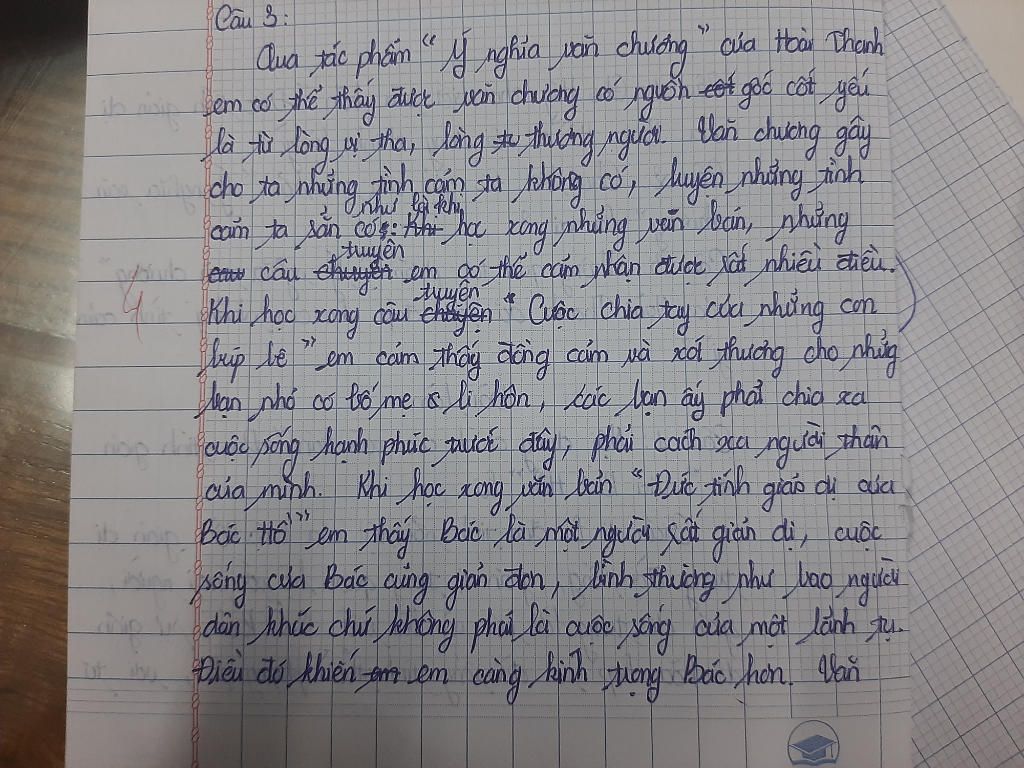 Câu 3:
Qua tác phẩm "Ý nghĩa văn chương" của Hoài Thanh
em có thể thấy được văn chương có nguồn cốt gốc cốt yếu
là từ lòng vị tha, lòng tư thương người. Văn chương gây
cho ta những tình cảm ta không có, luyện những tình
như là khi
cảm ta sẵn có: khi học xong những văn bản, những
truyện
câu chuyện em có thể cảm nhận được rất nhiều điều.
truyện
Khi học xong câu chuyện "Cuộc chia tay của những con
búp bê" em cảm thấy đồng cảm và xót thương cho những
bạn nhỏ có bố mẹ li hôn, các bạn ấy phải chia xa
cuộc sống hạnh phúc trước đây, phải cách xa người thân
của mình. Khi học xong văn bản "Đức tính giản dị của
Bác Hồ" em thấy Bác là một người rất giản dị, cuộc
sống của Bác cũng giản đơn, bình thường như bao người
dân khác chứ không phải là cuộc sống của một lãnh tụ.
Điều đó khiến em em càng kính trọng Bác hơn. Văn